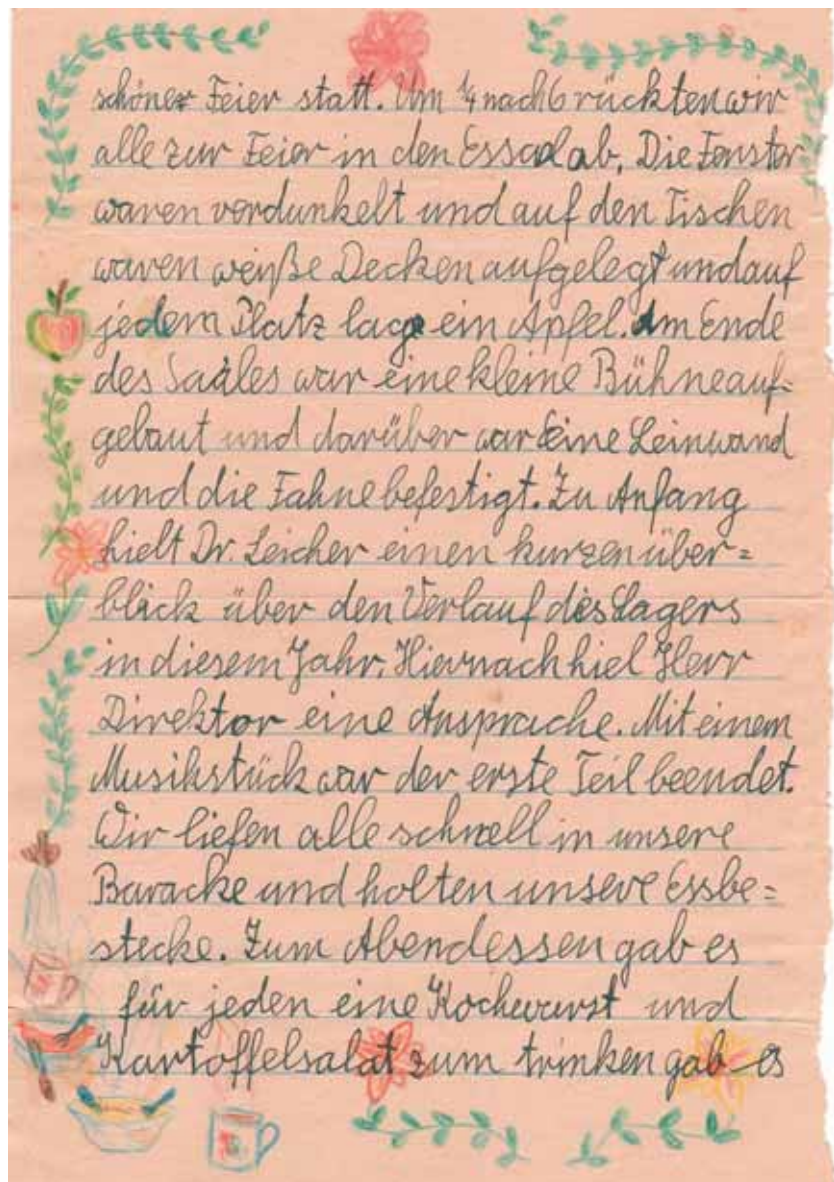 schöner Feier statt. Um ¼ nach 6 rückten wir
alle zur Feier in den Essaal ab. Die Fenster
waren verdunkelt und auf den Tischen
waren weiße Decken aufgelegt und auf
jedem Platz lag ein Apfel. Am Ende
des Saales war eine kleine Bühne auf=
gebaut und darüber war eine Leinwand
und die Fahne befestigt. Zu Anfang
hielt Dr. Leicher einen kurzen über=
blick über den Verlauf des Lagers
in diesem Jahr. Hiernach hiel Herr
Direktor eine Ansprache. Mit einem
Musikstück war der erste Teil beendet.
Wir liefen alle schnell in unsere
Baracke und holten unsere Essbe=
stecke. Zum Abendessen gab es
für jeden eine Kochwurst und
Kartoffelsalat zum trinken gab es